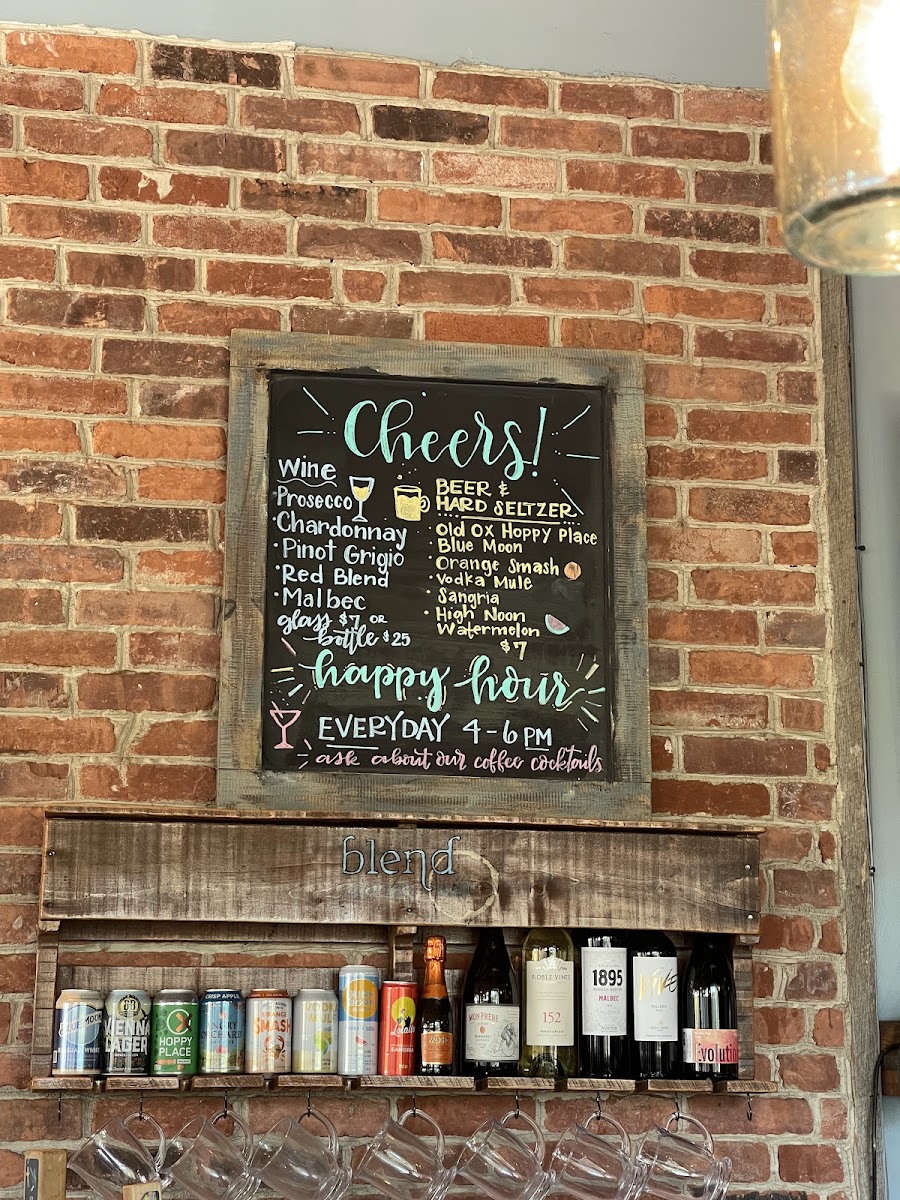 Cheers!
Wine
Prosecco
·Chardonnay
·Pinot Grigio
·Red Blend
·Malbec
glass $7 OR
bottle $25
BEER &
HARD SELTZER
·Old Ox Hoppy Place
Blue Moon
·Orange Smash
·Vodka Mule
·Sangria
·High Noon
Watermelon
$7
happy hour
EVERYDAY 4-6 PM
ask about our coffee cocktails
blend
BLUE MOON
BELGIAN WHITE
VIENNA
LAGER
HOPPY
PLACE
CRISP APPLE
ANGRY
ORCHARD
ORANGE
SMASH
Lolailo
SANGRIA
MON FRÈRE
NOBLE VINES
152
PINOT GRIGIO
1895
MALBEC
MALBEC
Evolution